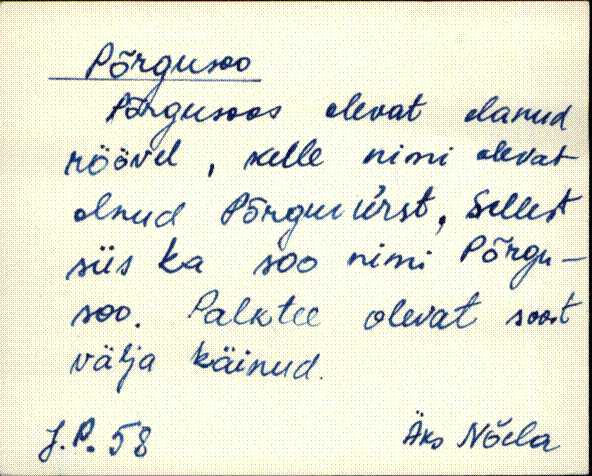 Põrgusoo
Põrgusoos olevat elanud
röövel, kelle nimi olevat
olnud Põrguvürst. Sellest
siis ka soo nimi Põrgu-
soo. Palktee olevat soost
välja käinud.
J.P. 58 Äks Nõela